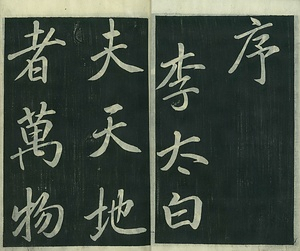 序
李太白
夫天地
者萬物